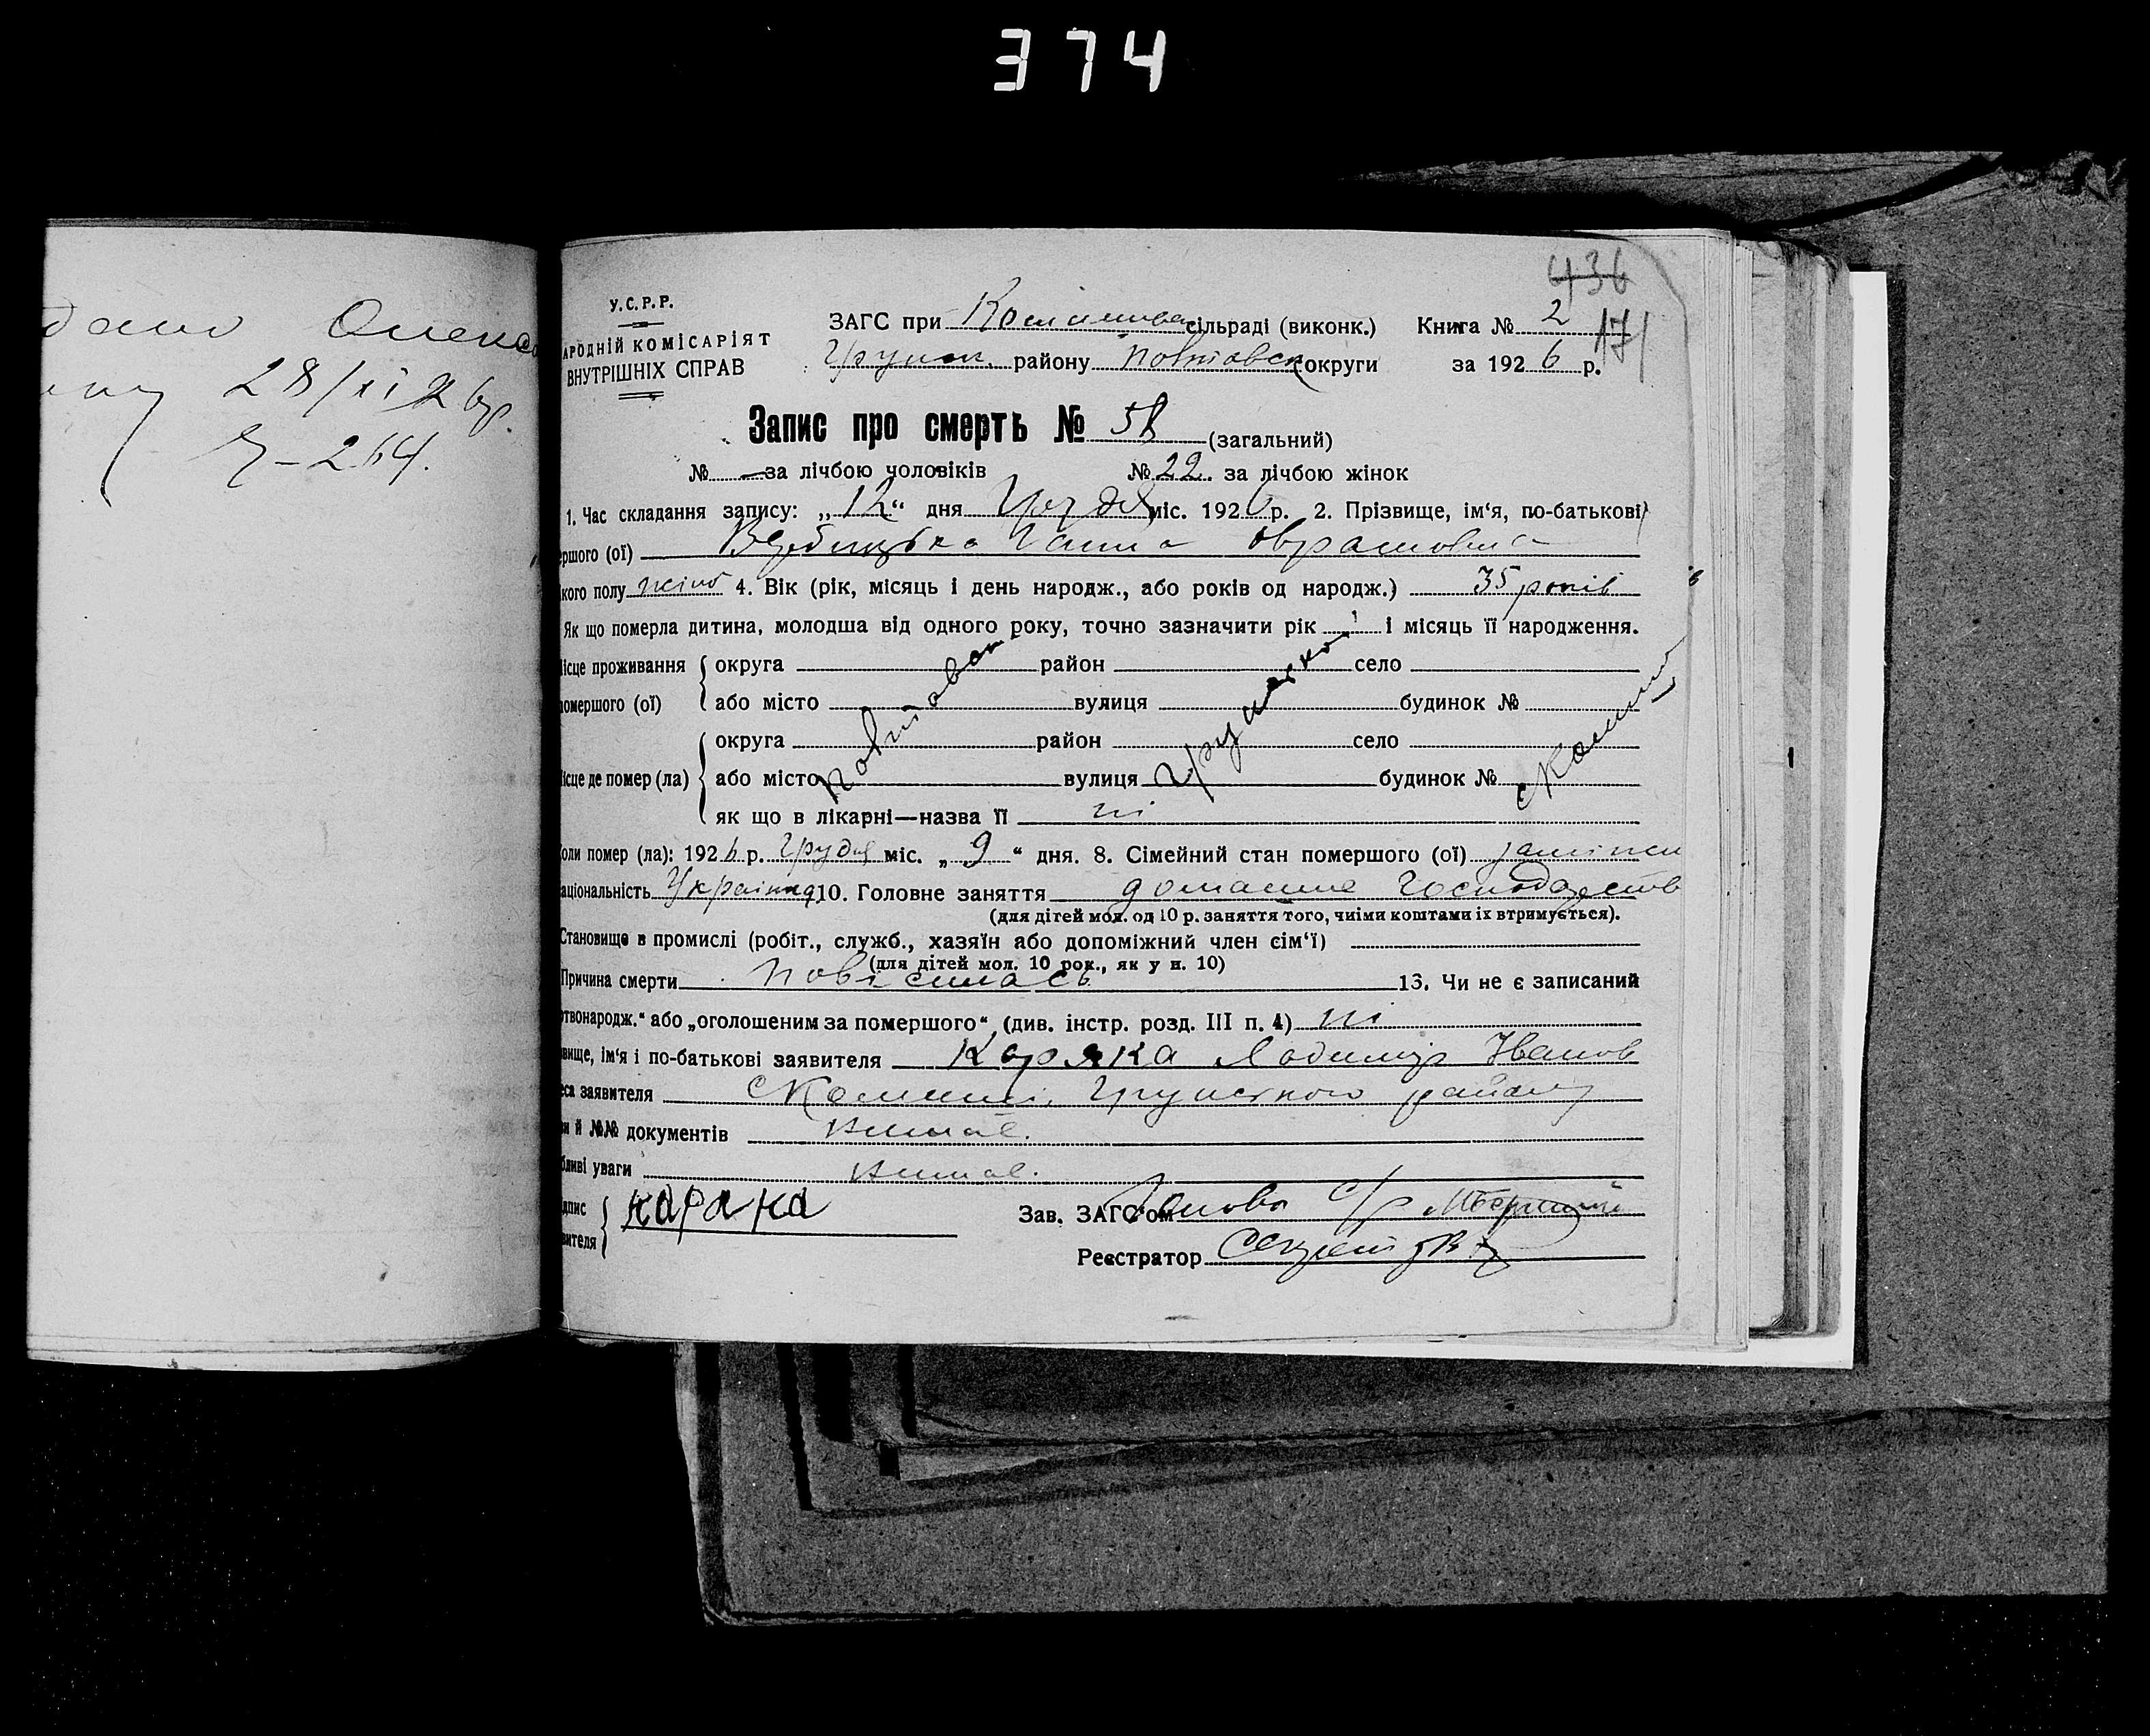 374
дано Олекса
28/XI 26р.
264.
436
171
У.С.Р.Р.
АРОДНІЙ КОМІСАРІЯТ
ВНУТРІШНІХ СПРАВ
ЗАГС при сільраді (виконк.) Книга № 2
Грунськ. району Полтавськ округи за 1926 р.
Запис про смерть № 58 (загальний)
№ — за лічбою чоловіків № 22. за лічбою жінок
1. Час складання запису: „12“ дня Грудня міс. 1926 р. 2. Прізвище, ім‘я, по-батькові
ршого (ої) Ганна
кого полу жіно 4. Вік (рік, місяць і день народж., або років од народж.) 35 років
Як що померла дитина, молодша від одного року, точно зазначити рік і місяць її народження.
ісце проживання округа район село
помершого (ої) або місто вулиця будинок №
округа район село
ісце де помер (ла) або місто вулиця будинок №
Полтавськ Грунського
як що в лікарні—назва її ні
оли помер (ла): 1926 р. Грудня міс. „9“ дня. 8. Сімейний стан помершого (ої)
аціональність Українка 10. Головне заняття домашнє господарств
(для дітей мол. од 10 р. заняття того, чиїми коштами їх втримується).
Становище в промислі (робіт., служб., хазяїн або допоміжний член сім‘ї)
(для дітей мол. 10 рок., як у н. 10)
Причина смерти повісилась 13. Чи не є записаний
ртвонародж.“ або „оголошеним за помершого“ (див. інстр. розд. III п. 4) ні
вище, ім‘я і по-батькові заявителя Каряка Іванов
еса заявителя Грунського району
и й №№ документів Нимає.
бливі уваги Нимає.
дпис
вителя каряка
Зав. ЗАГС‘ом Голова с/р
Реєстратор Секрет